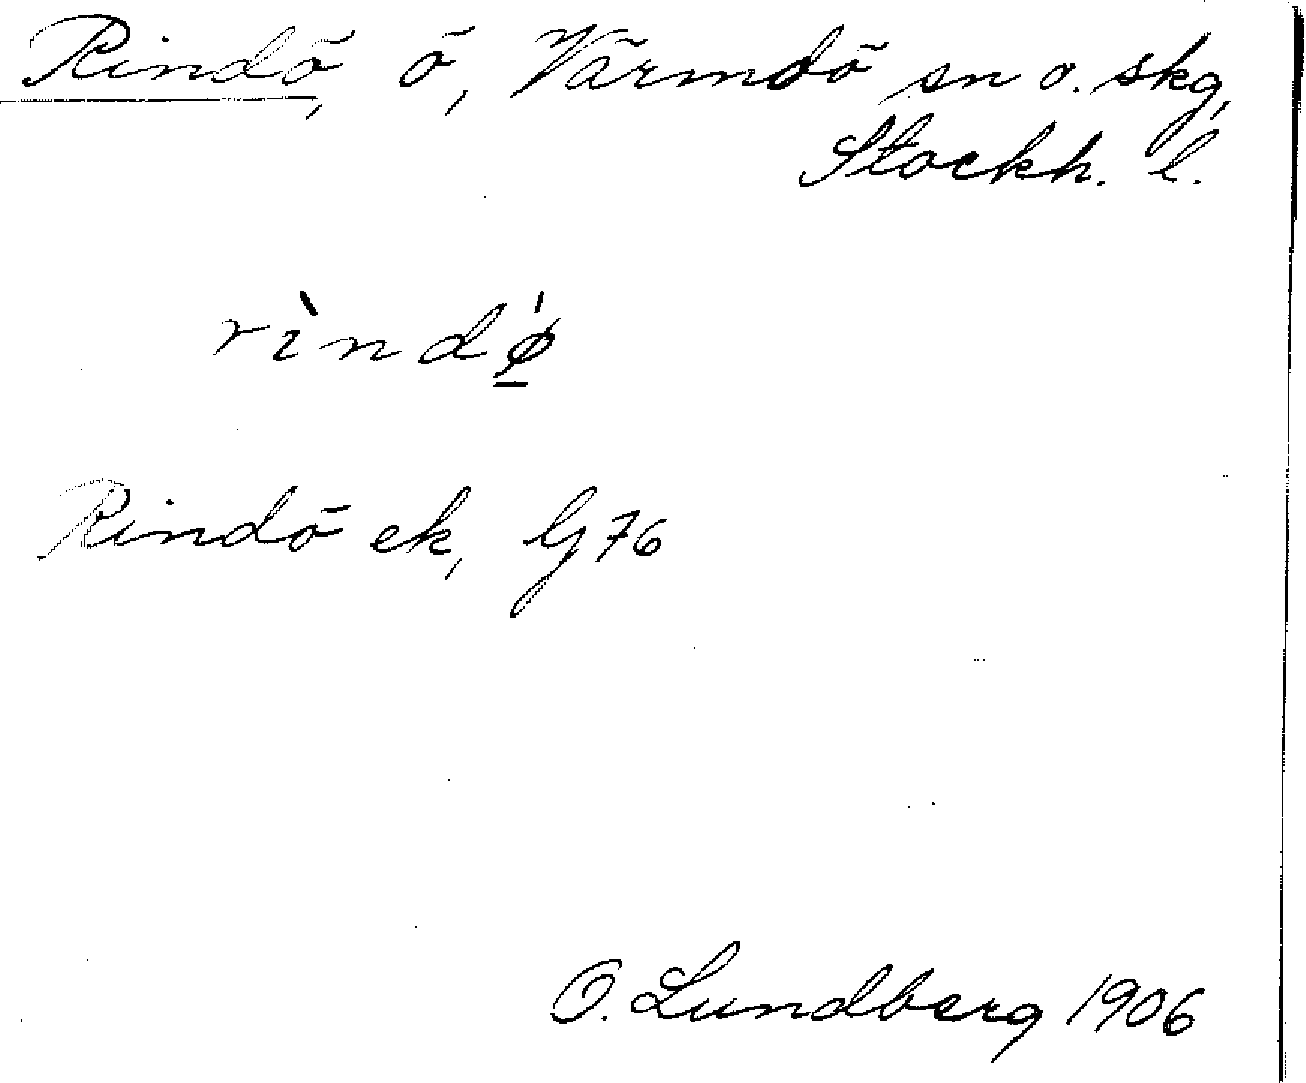 Rindö, ö, Värmdö sn o. skg,
Stockh. l.
rìndǿ̱
Rindö ek, G 76
O. Lundberg 1906